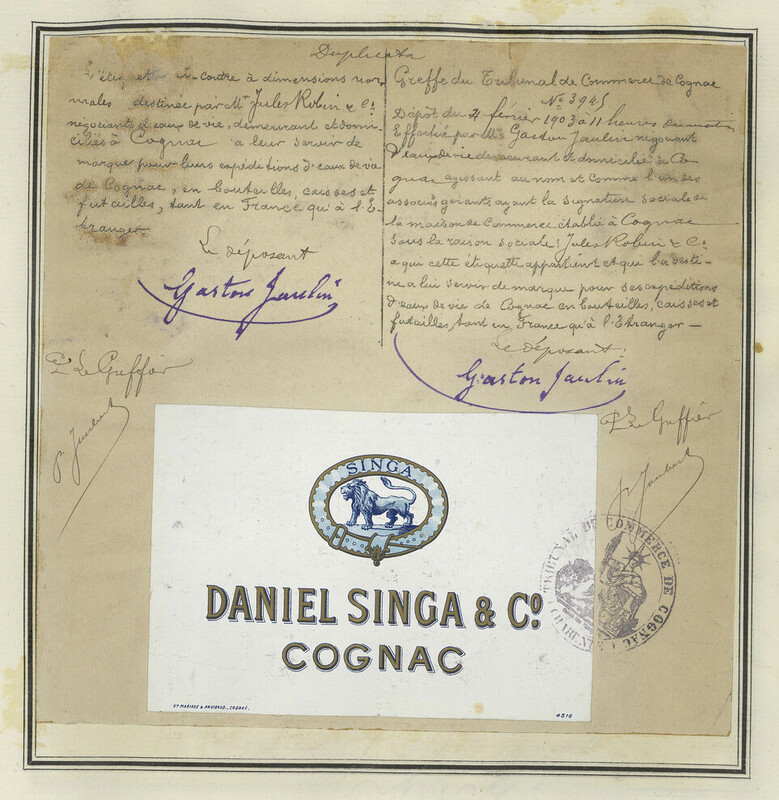 Duplicata
L'étiquette ci-contre à dimensions nor
males destinée par Mrs Jules Robin & Cie
négociants d'eaux de vie, demeurant et domi-
ciliés à Cognac a leur servir de
marque pour leurs expéditions d'eaux de vie
de Cognac, en bouteilles, caisses et
futailles, tant en France qu'à l'E-
tranger.
Le déposant
Gaston Jaulin
Pr Le Greffier
Greffe du Tribunal de Commerce de Cognac
No 3945
Dépôt du 4 février 1903 a 11 heures du matin
Effectué par Mr Gaston Jaulin négociant
d'eaux de vie demeurant et domicilié à Co-
gnac agissant au nom et comme l'un des
associés gérants ayant la signature sociale de
la maison de Commerce établie à Cognac
sous la raison sociale: Jules Robin & Cie
a qui cette étiquette appartient et qui l'a desti-
né a lui servir de marque pour ses expéditions
d'eaux de vie de Cognac en bouteilles, caisses et
futailles, tant en France qu'à l'Etranger —
Le déposant.
Gaston Jaulin
Pr Le Greffier
SINGA
DANIEL SINGA & Co
COGNAC
Vve MARIAGE & ANGIBAUD_COGNAC.
4516
TRIBUNAL DE COMMERCE DE COGNAC